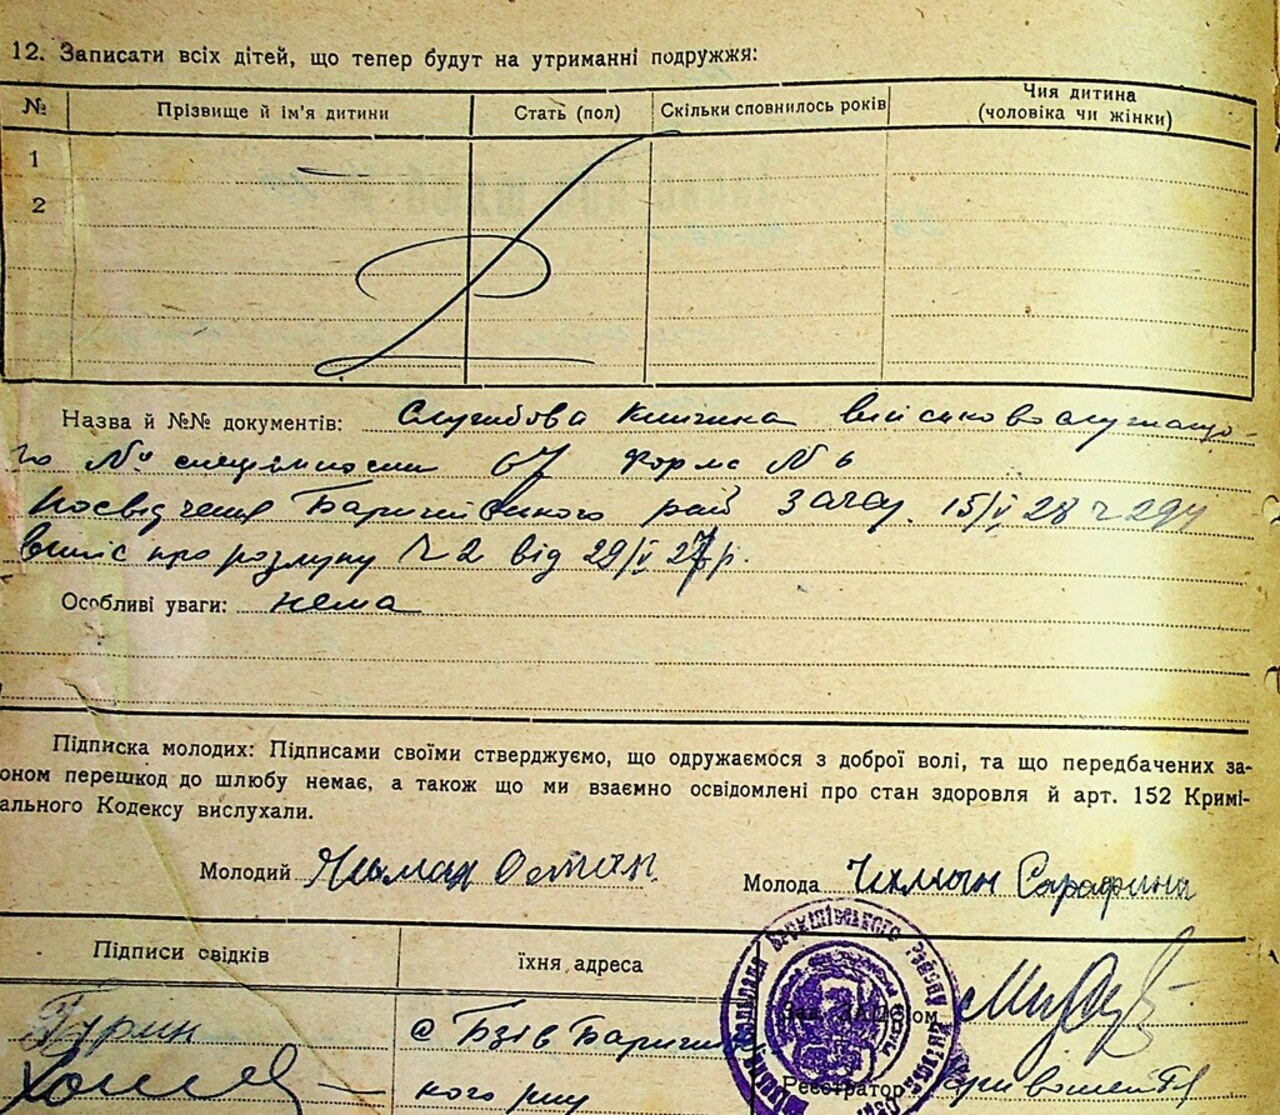 12. Записати всіх дітей, що тепер будут на утриманні подружжя:
№ Прізвище й ім'я дитини Стать (пол) Скільки сповнилось років Чия дитина (чоловіка чи жінки)
1
2
Назва й №№ документів: Службова книжка військовослужащо-
го № спеціяльности 67 форма № 6
Посвідчення Баришівського рай ЗАГСу. 15/V 28
випис про розлуку ч 2 від 29/V 27 р.
Особливі уваги: нема
Підписка молодих: Підписами своїми стверджуємо, що одружаємося з доброї волі, та що передбачених за-
оном перешкод до шлюбу немає, а також що ми взаємно освідомлені про стан здоровля й арт. 152 Кримі-
ального Кодексу вислухали.
Молодий Остап Молода Сарафина
Підписи свідків їхня адреса
Гурин с Бзів Баришівс
кого рну
Реєстратор